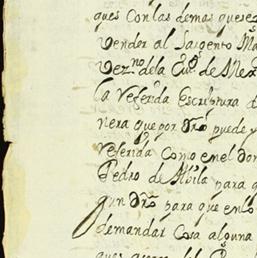 ques Con las demas que se ez
Vender al Sargento Ma
Vez.no de la Ciu.d de Mex
la Referida Escriptura d
nera que por Dro puede y
referida Como en el Don
Pedro de Abila para q
gun Dro para que en lo
demandar Cosa alguna